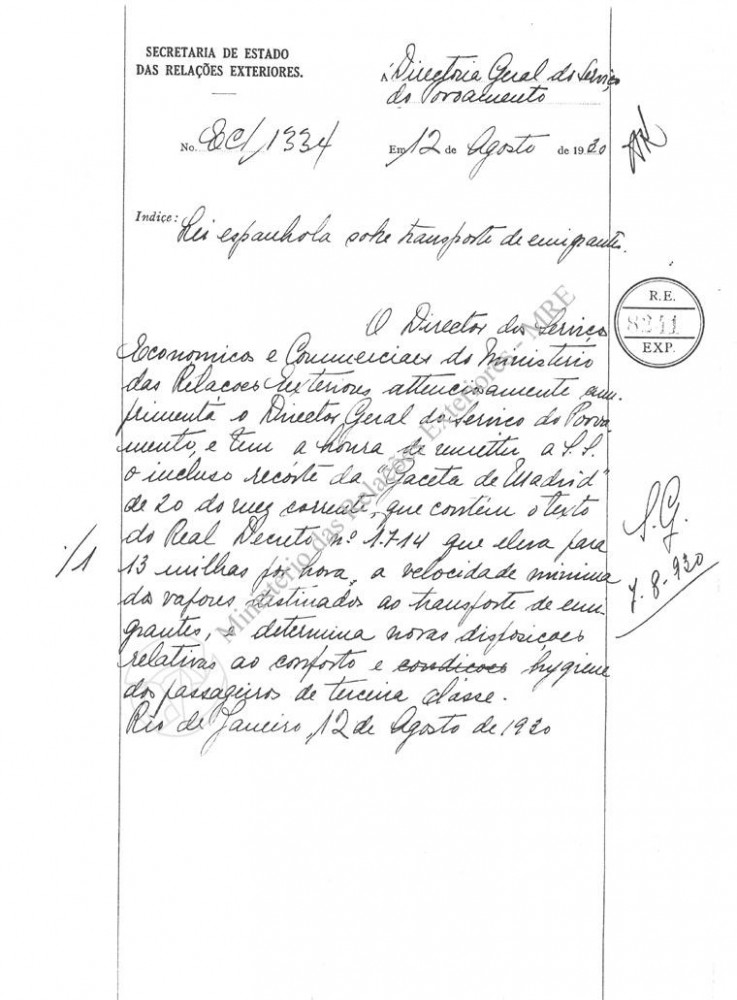 SECRETARIA DE ESTADO
DAS RELAÇÕES EXTERIORES.
Á Directoria Geral do Serviço
do Povoamento
No. EC/1334
Em 12 de Agosto de 1930
Indice: Lei espanhola sobre transporte de emigrantes.
R.E.
8241
EXP.
O Director dos Serviços
Economicos e Commerciaes do Ministerio
das Relações Exteriores attenciosamente cum-
primenta o Director Geral do Serviço do Povoa-
mento, e tem a honra de remetter a S.S.
o incluso recorte da "Gaceta de Madrid"
de 20 do mez corrente, que contém o texto
do Real Decreto nº 1.714 que eleva para
/1 13 milhas por hora, a velocidade minima
dos vapores destinados ao transporte de emi-
grantes, e determina novas disposições
relativas ao conforto e condições hygiene
dos passageiros de terceira classe.
Rio de Janeiro, 12 de Agosto de 1930
S.G.
7-8-930
Ministério das Relações Exteriores - MRE